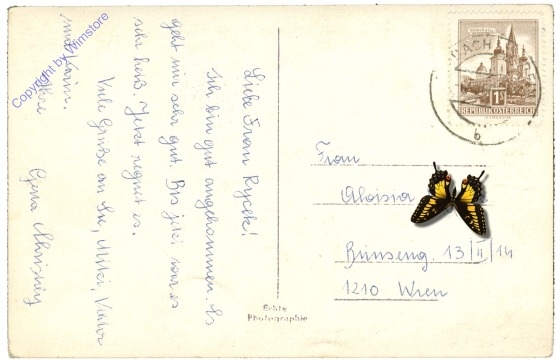 Liebe Frau Rycek!
Ich bin gut angekommen. Es
geht mir sehr gut. Bis jetzt war es
sehr heiß. Jetzt regnet es.
Viele Grüße an Sie,
und Karin.
Ihre
Copyright by Wimstore
MARIAZELL
1S
REPUBLIK ÖSTERREICH
b
Frau
Aloisia
Bünseng. 13/II/14
1210 Wien
Echte
Photographie